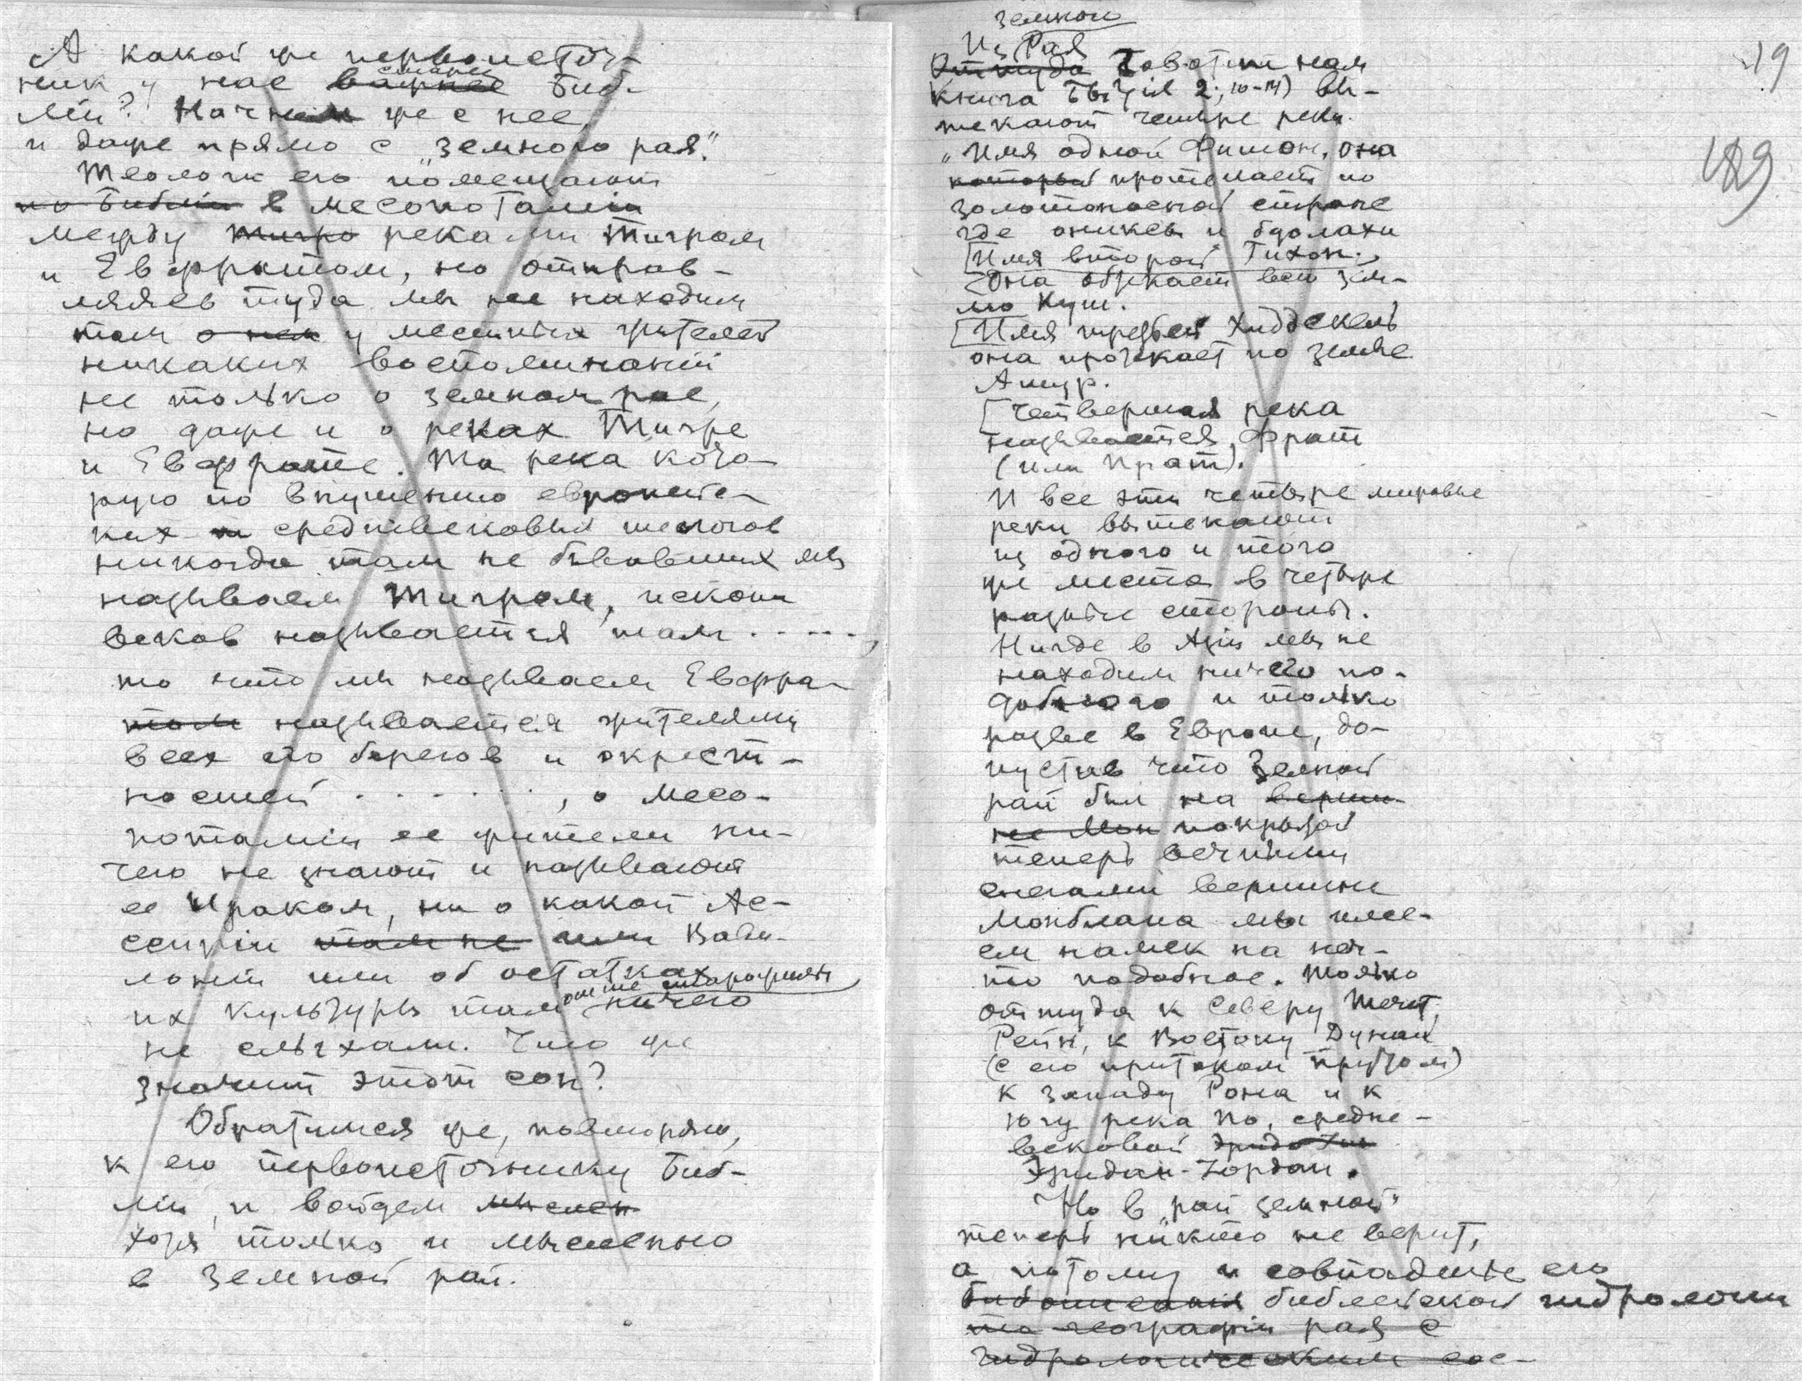 А какой же первоисточ-
ник у нас важнее старее Биб-
лии? Начнем же с нее,
и даже прямо с "земного рая."
Теологи его помещают
по Библии в Месопотамии
между Тигро реками Тигром
и Евфратом, но отправ-
ляясь туда мы не находим
там о нем у местных жителей
никаких воспоминаний
не только о земном рае,
но даже и о реках Тигре
и Евфрате. Та река кото-
рую по внушению европейс-
ких и средневековых теологов
никогда там не бывавших мы
называем Тигром, искони
веков называется там . . . . .,
то что мы называем Евфра-
том называется жителями
всех его берегов и окрест-
ностей . . . . . . , о Месо-
потамии ее жители ни-
чего не знают и называют
ее Ираком, ни о какой Ас-
сирии там не или Вави-
лонии или об остатках
их культуры там от старожилов ничего
не слыхали. Что же
значит этот сон?
Обратимся же, повторяю,
к его первоисточнику Биб-
лии, и войдем мыслен
хотя только и мысленно
в земной рай.
земного
Из Рая
Оттуда говорит нам
книга Бытия 2, 10-14) вы-
текают четыре реки.
"Имя одной Фишон, она
который протекает по
золотоносной стране
где оникс и бдолахи
[Имя второй Гихон.,
Она обтекает всю зем-
лю Куш.
[Имя третьей Хиддекель
она протекает по земле
Ашур.
[Четвертая река
называется Фрат
(или Прат).
И все эти четыре мировые
реки вытекают
из одного и того
же места в четыре
разные стороны.
Нигде в Азии мы не
находим ничего по-
добного и только
разве в Европе, до-
пустив что Земной
рай был на верши-
не Мон покрытой
теперь вечными
снегами вершине
Монблана мы име-
ем намек на неч-
то подобное. Только
оттуда к Северу течет
Рейн, к Востоку Дунай
(с его притоком Прутом)
к Западу Рона и к
югу река По, средне-
вековой Эридахи
Эридан-Иордан.
Но в "рай земной"
теперь никто не верит,
а потому и совпадение его
библейской гидрологии
то географии рая с
гидрологическим сос-
19
189